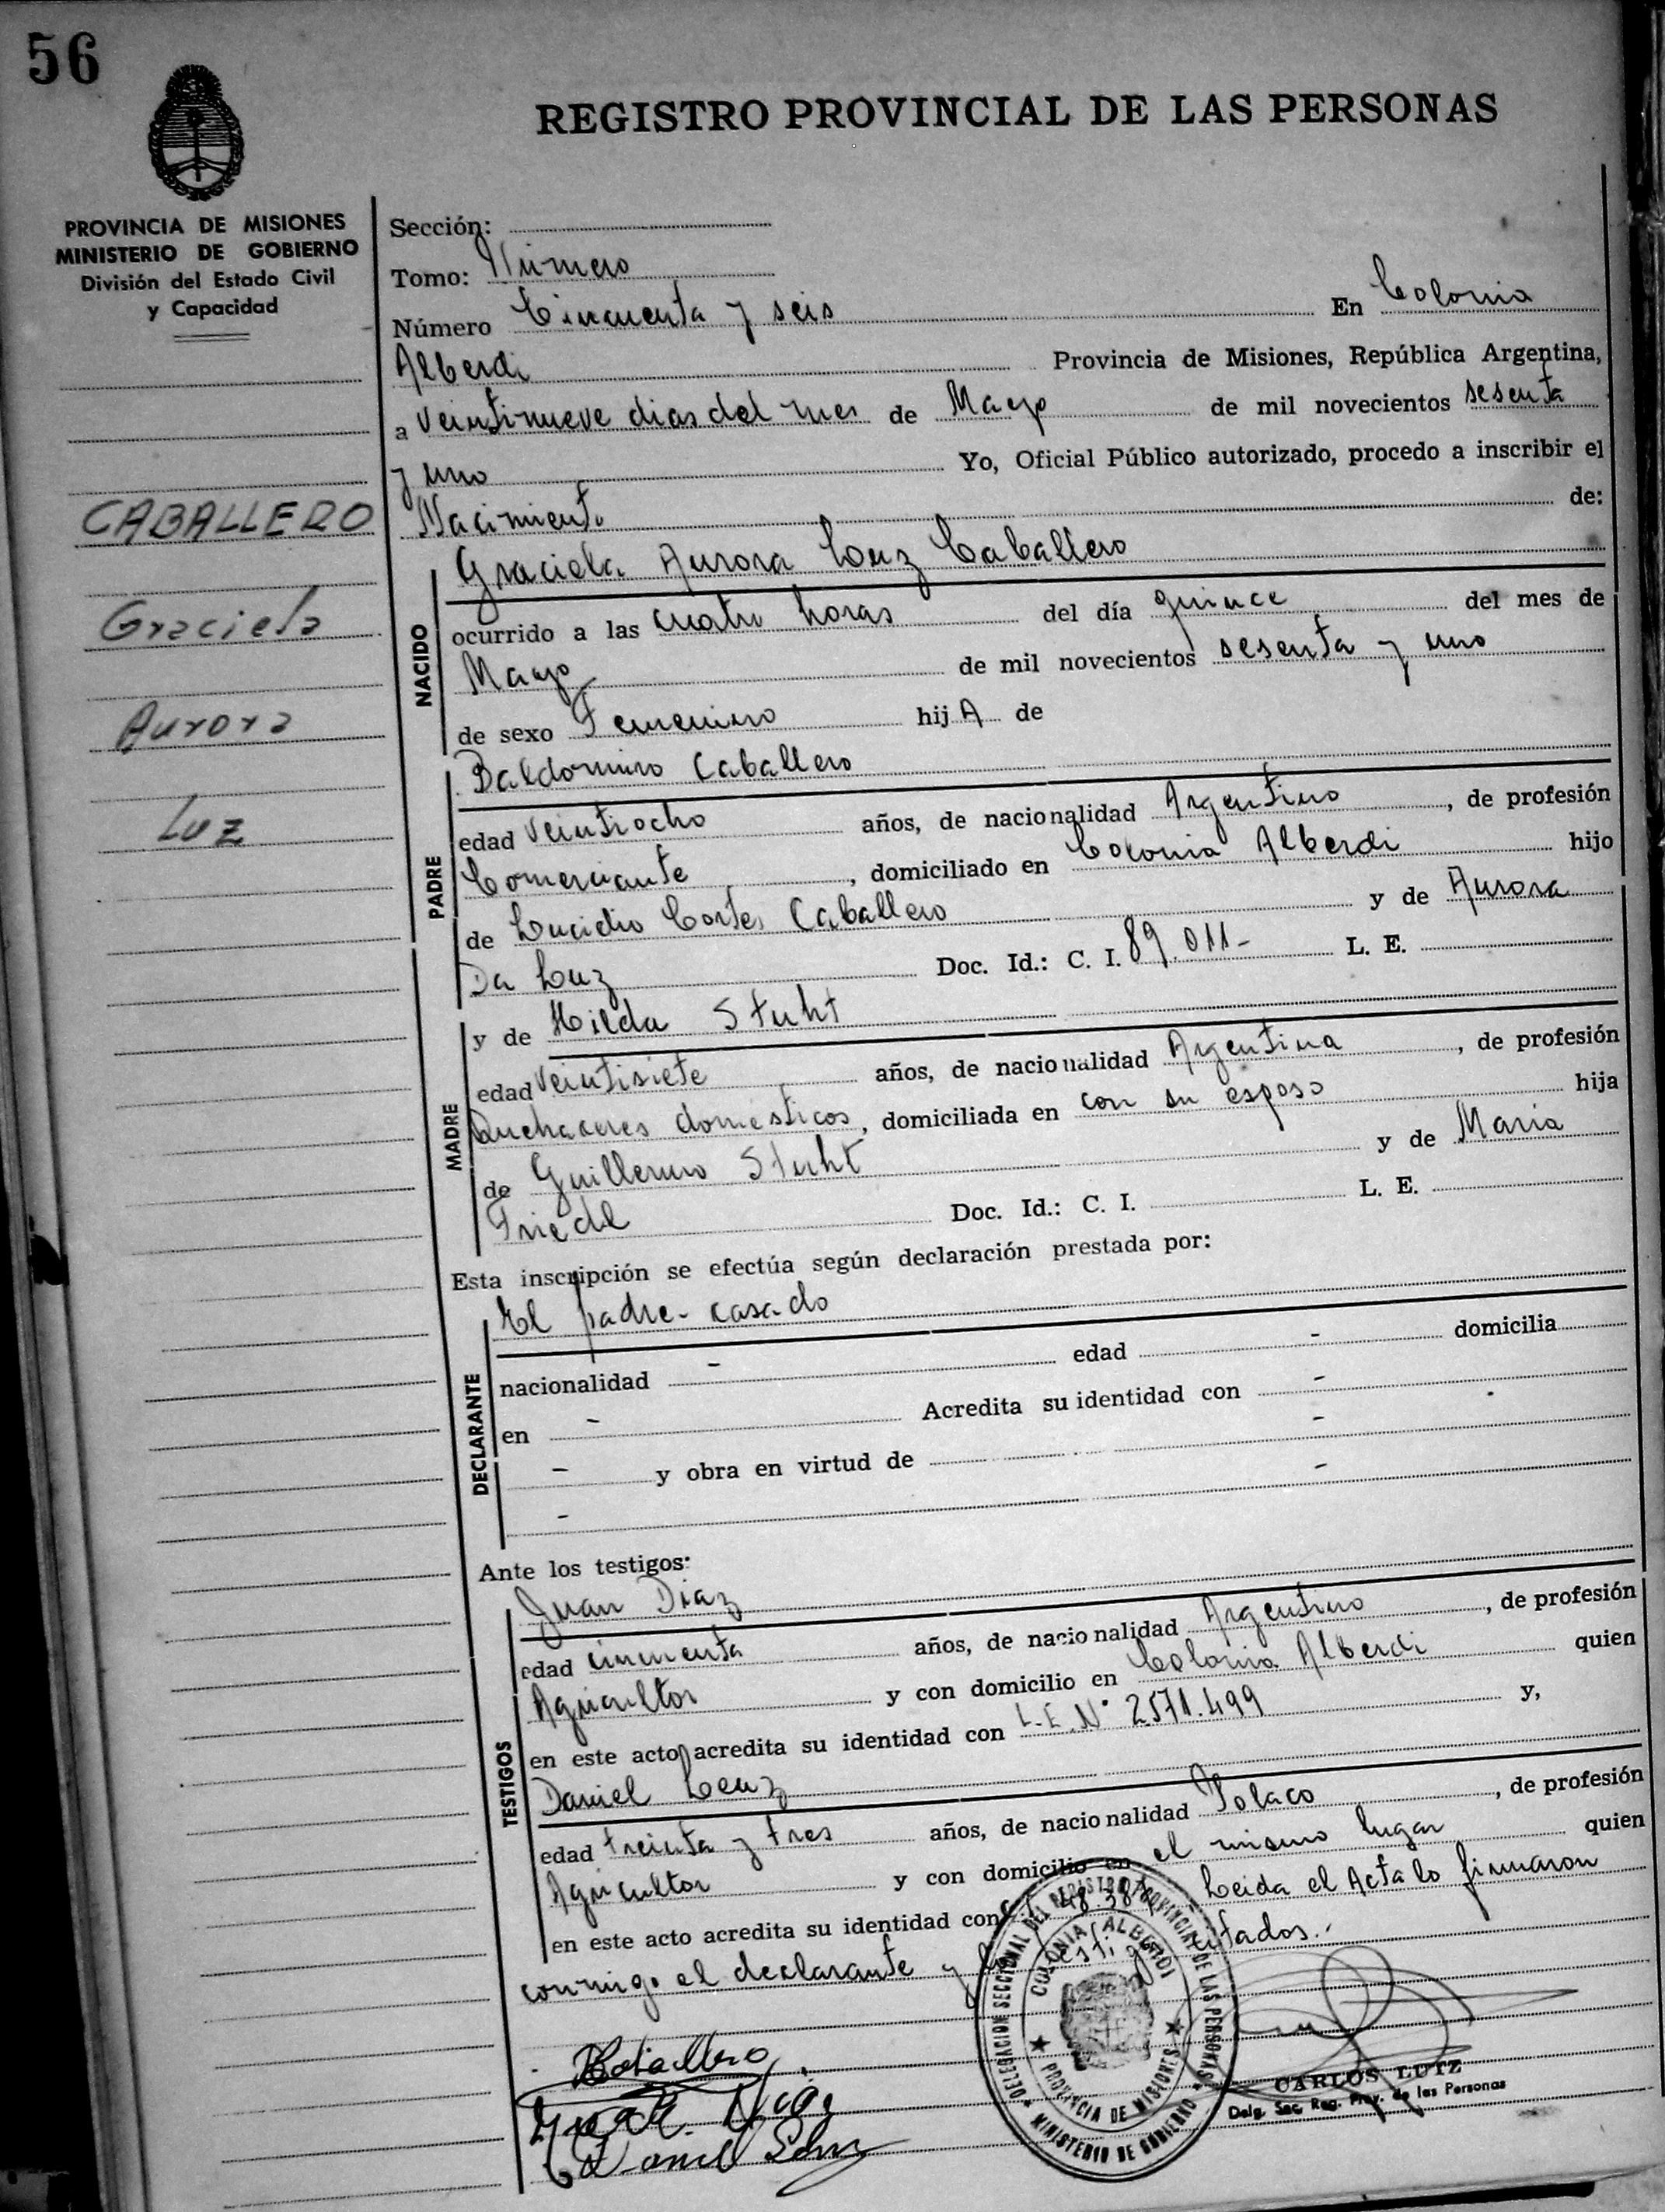 56
REGISTRO PROVINCIAL DE LAS PERSONAS
PROVINCIA DE MISIONES
MINISTERIO DE GOBIERNO
División del Estado Civil
y Capacidad
CABALLERO
Graciela
Aurora
Luz
Sección:
Tomo: Número
Número Cincuenta y seis En Colonia
Alberdi Provincia de Misiones, República Argentina,
a veintinueve dias del mes de Mayo de mil novecientos sesenta
y uno Yo, Oficial Público autorizado, procedo a inscribir el
Nacimiento de:
Graciela Aurora Luz Caballero
NACIDO
ocurrido a las cuatro horas del día quince del mes de
Mayo de mil novecientos sesenta y uno
de sexo Femenino hij A de
PADRE
Baldomiro Caballero
edad veintiocho años, de nacionalidad Argentino, de profesión
Comerciante, domiciliado en Colonia Alberdi hijo
de Lucidio Cortes Caballero y de Aurora
Da Luz Doc. Id.: C. I. 89.011- L. E.
MADRE
y de Hilda Stuht
edad veintisiete años, de nacionalidad Argentina, de profesión
Quehaceres domésticos, domiciliada en con su esposo hija
de Guillermo Stuht y de Maria
Friedl Doc. Id.: C. I. L. E.
Esta inscripción se efectúa según declaración prestada por:
DECLARANTE
El padre- casado
nacionalidad - edad - domicilia
en - Acredita su identidad con -
- y obra en virtud de -
- -
Ante los testigos:
TESTIGOS
Juan Diaz
edad cincuenta años, de nacionalidad Argentino, de profesión
Agricultor y con domicilio en Colonia Alberdi quien
en este acto acredita su identidad con L.E. N° 2571.499 y,
Daniel Lenz
edad treinta y tres años, de nacionalidad Polaco, de profesión
Agricultor y con domicilio en el mismo lugar quien
en este acto acredita su identidad con Leida el Acta lo firmaron
conmigo el declarante y los testigos citados.-
DELEGACION SECCIONAL DEL REGISTRO PROVINCIAL DE LAS PERSONAS
MINISTERIO DE GOBIERNO
COLONIA ALBERDI
PROVINCIA DE MISIONES
CARLOS LUTZ
Delg. Sec. Reg. Prov. de las Personas